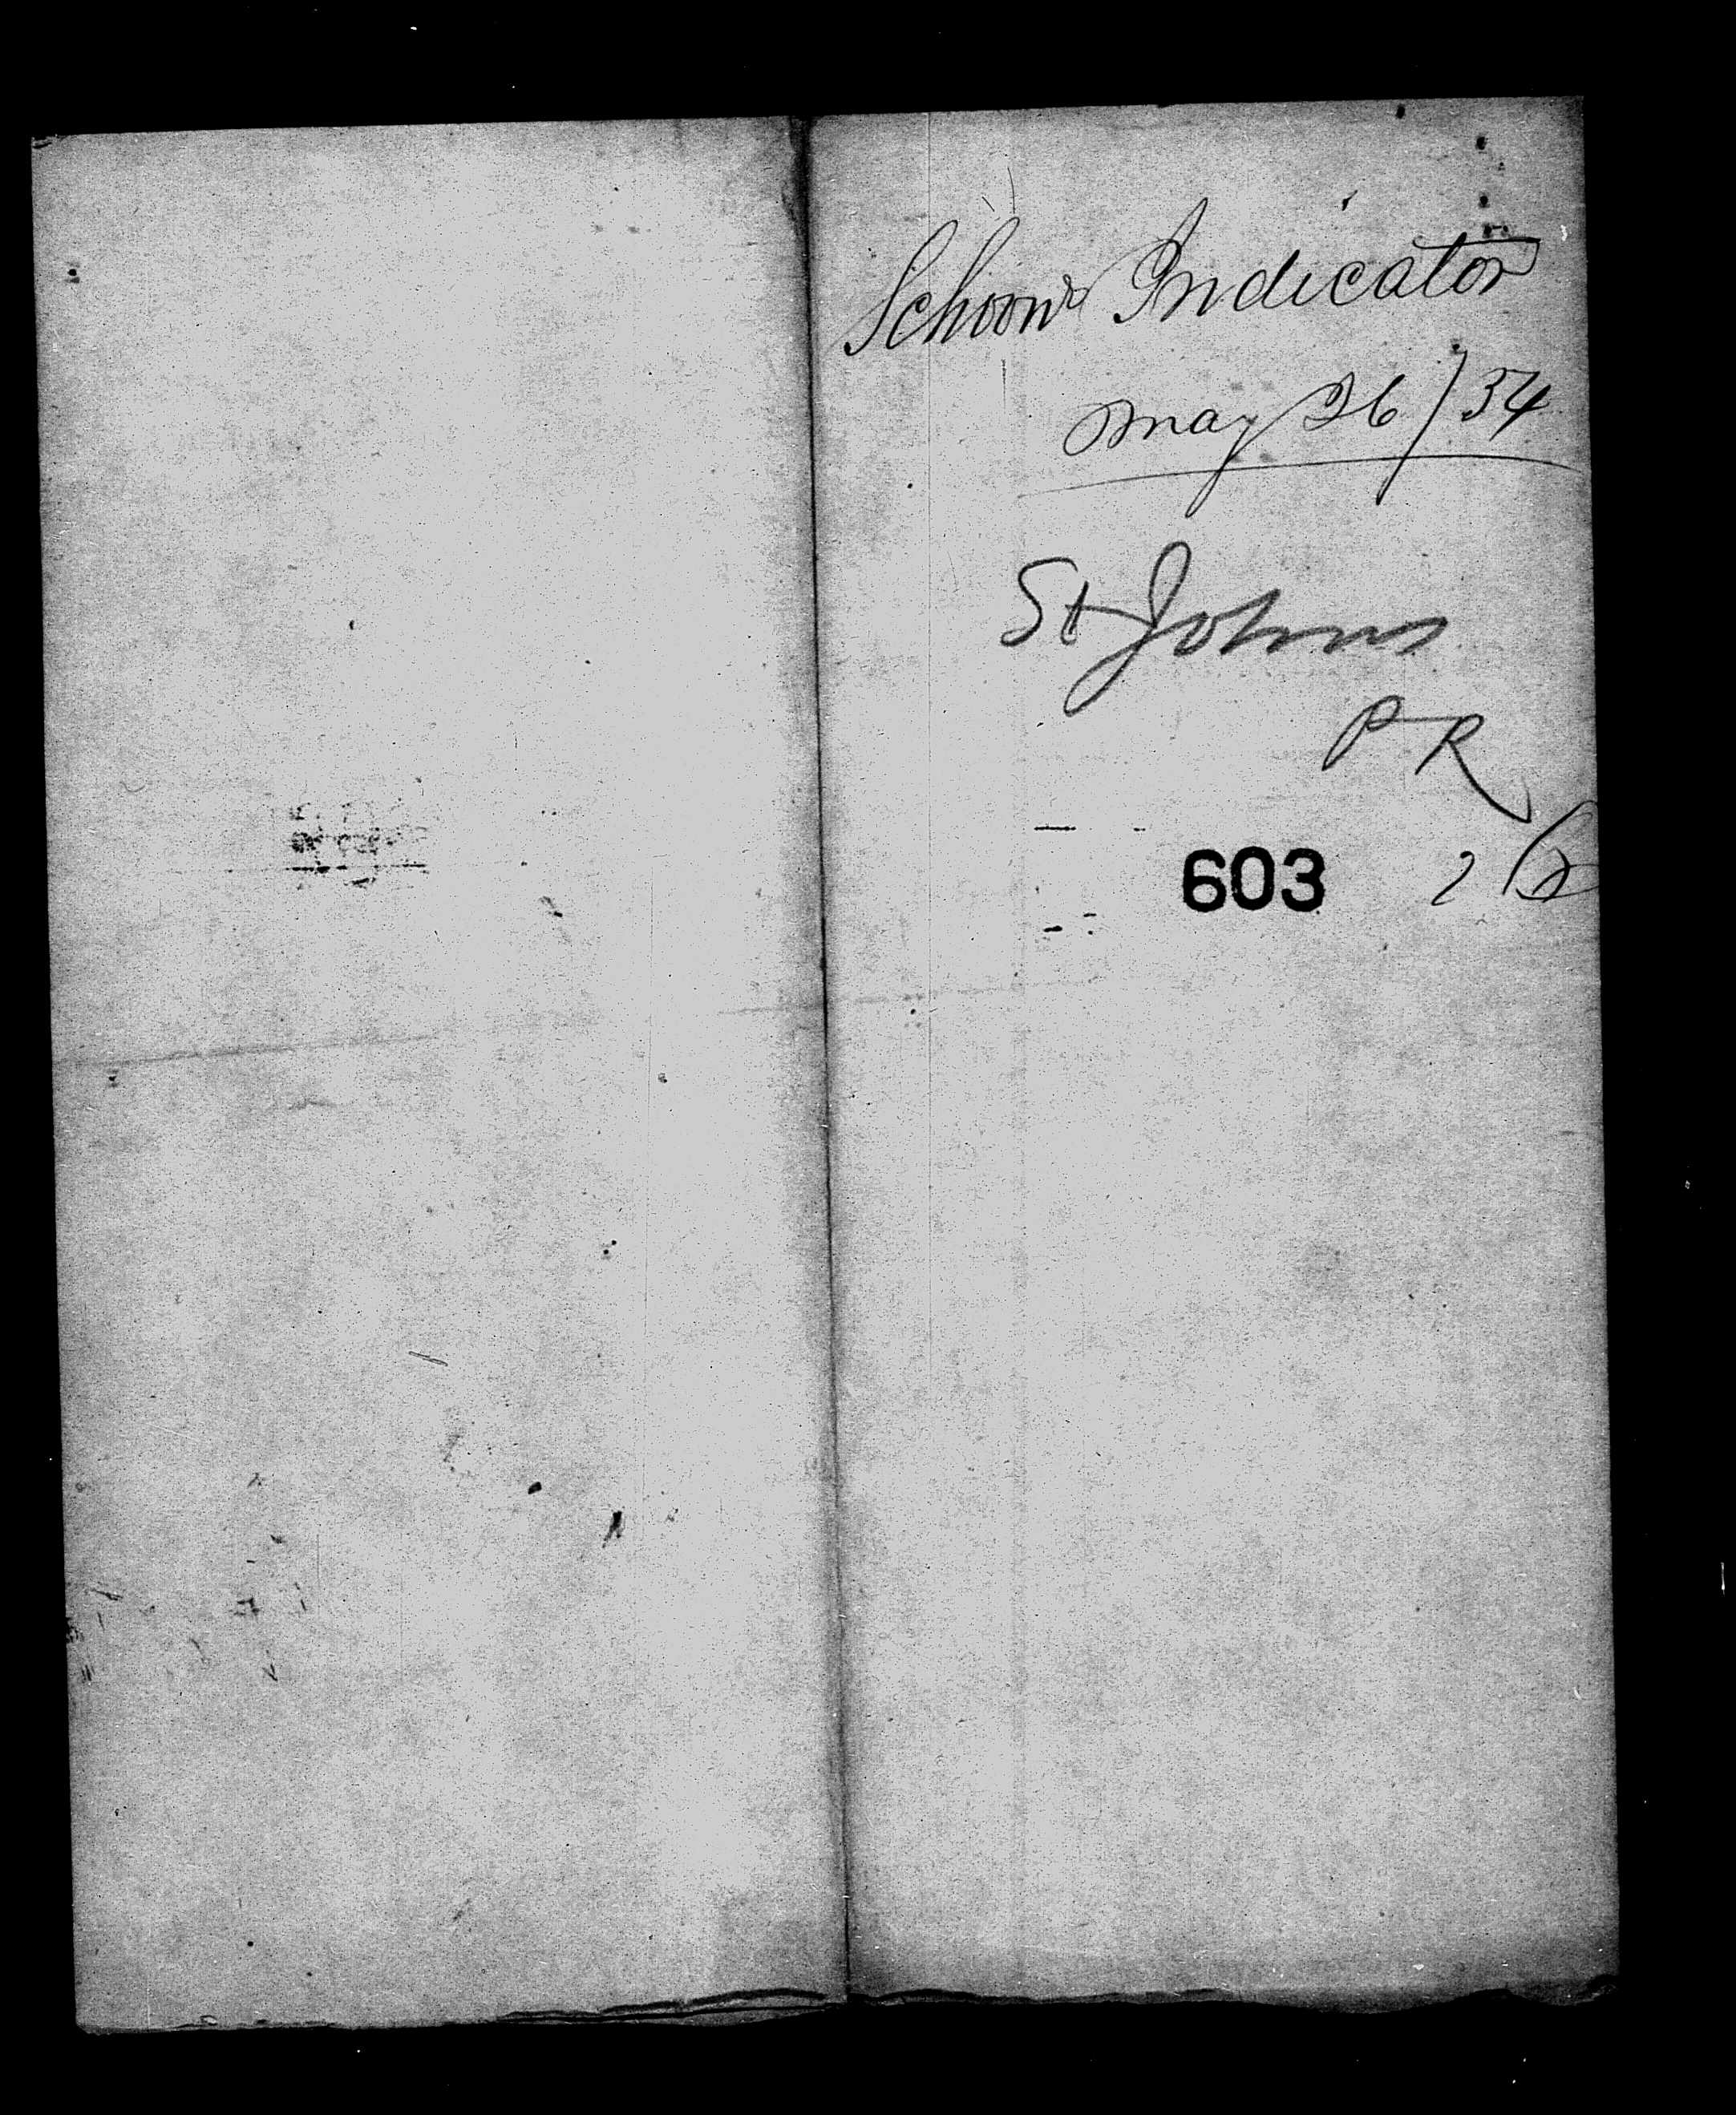 Schoonr Indicator
May 26/34
St Johns
PR
603 2